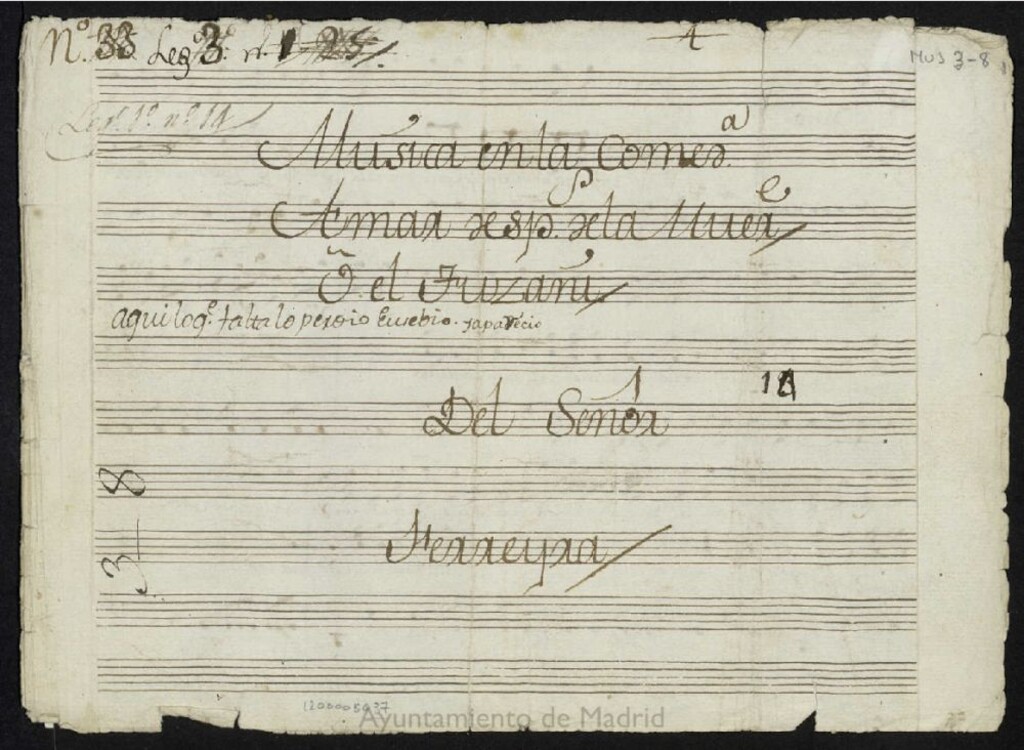 N.º 33 Leg.º 3.º n.º 1-25
MUS 3-8
Leg.º 1.º n.º 14
Musica en la Comed.ª
Amar desp.s de la Muer.e
Õ el Tuzani
aqui log.e falta lo perdio Eusebio. y aparecio
14
Del Señor
3-8
Ferreyra
1200005037
Ayuntamiento de Madrid